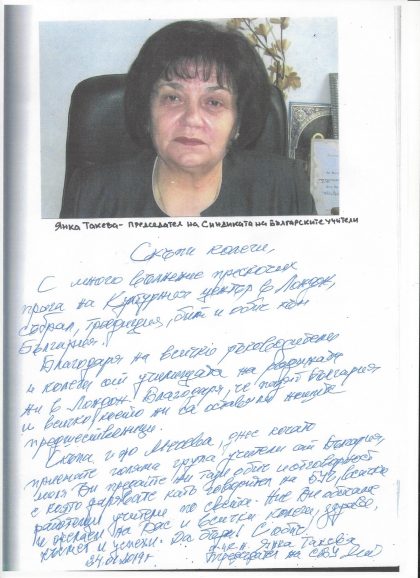 Янка Такева- председател на Синдиката на българските учители
Скъпи колеги,
С много вълнение прескочих
прага на Културния център в Лондон,
събрал, традиция, бит и обич към
България!
Благодаря на всички ръководители
и колеги от училищата на родината
ни в Лондон. Благодаря, че пазят България
и всичко което ни са оставили нашите
предшественици.
Скъпа г-жо, днес когато
приемате голяма група учители от България,
моля Ви предайте им тази обич и отговорност
с която държавате като
работещи учители по света. Ние Ви обичаме
и желаем на Вас и всички колеги, здраве,
късмет и успехи. Да бъде! С обич,
Янка Такева
Председател на СБУ